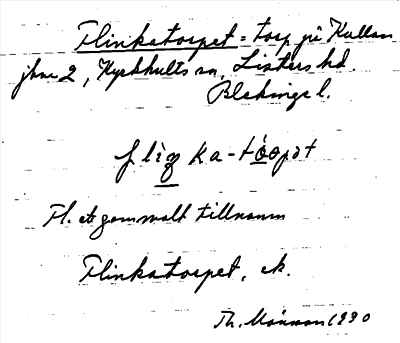 Flinkatorpet = torp på Kullan
jhm 2, Kyrkhults sn, Listers hd.
Blekinge l.
fliŋka-tóorpət
Fl. et gammalt tillnamn
Flinkatorpet, ek.
Th. Månsson 1930